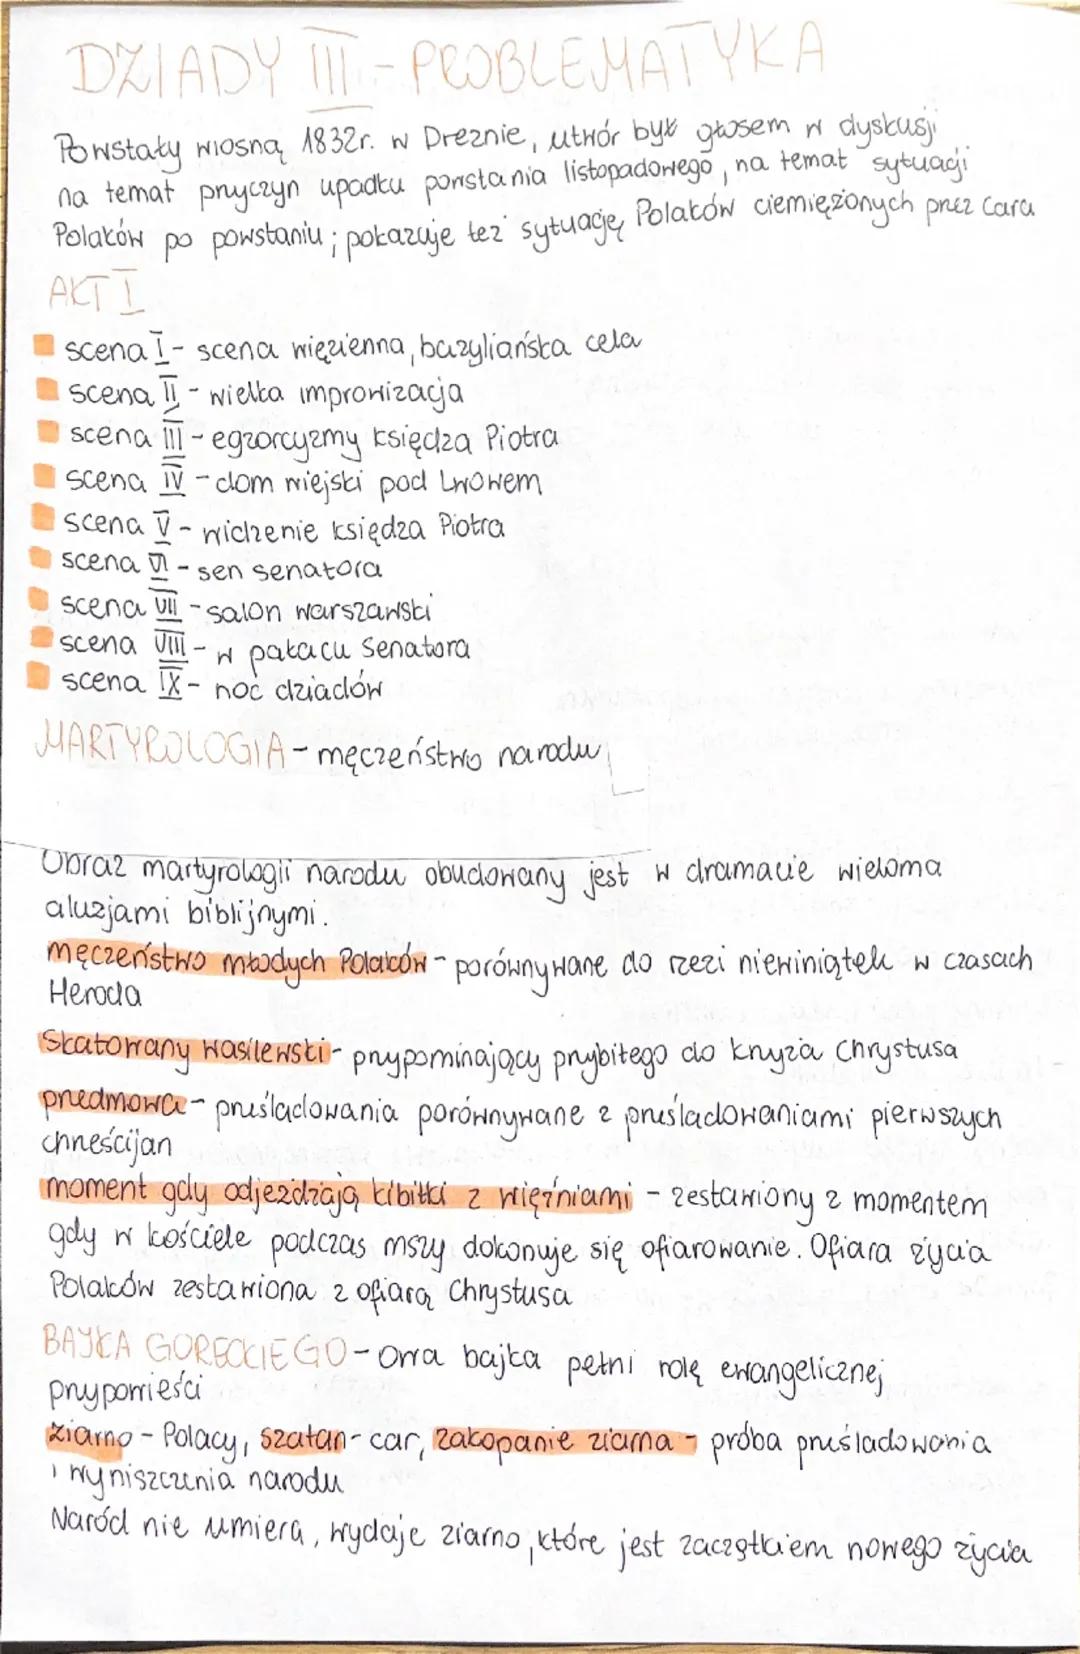 DZIADY III - PROBLEMATYKA
Powstały wiosną 1832r. w Dreznie, utwór był głosem w dyskusji
na temat przyczyn upadku powstania listopadowego, na temat sytuacji
Polaków po powstaniu; pokazuje też sytuację Polaków ciemiężonych przez cara
AKT I
scena I - scena więzienna, bazyliańska cela
scena II - wielka improwizacja
scena III - egzorcyzmy księdza Piotra
scena IV - dom wiejski pod Lwowem
scena V - widzenie księdza Piotra
scena VI - sen senatora
scena VII - salon warszawski
scena VIII - w pałacu Senatora
scena IX - noc dziadów
MARTYROLOGIA - męczeństwo narodu
Obraz martyrologii narodu obudowany jest w dramacie wieloma
aluzjami biblijnymi.
męczeństwo młodych Polaków - porównywane do rzezi niewiniątek w czasach
Heroda
Skatowany wasilewski - przypominający przybitego do krzyża Chrystusa
przedmowa - prześladowania porównywane z prześladowaniami pierwszych
chrześcijan
moment gdy odjeżdżają kibitki z więźniami - zestawiony z momentem
gdy w kościele podczas mszy dokonuje się ofiarowanie. Ofiara życia
Polaków zestawiona z ofiarą Chrystusa
BAJKA GORECKIEGO - Owa bajka pełni rolę ewangelicznej
przypowieści
ziarno - Polacy, szatan - car, zakopanie ziarna - próba prześladowania
i wyniszczenia narodu
Naród nie umiera, wydaje ziarno, które jest zaczątkiem nowego życia